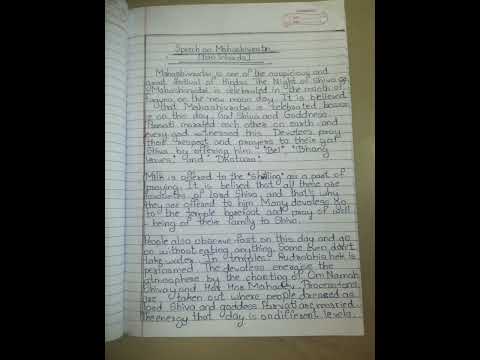 Speech on Mahashivratri
Mahashivratri is one of the auspicious and
great festival of Hindus. The Night of Shiva or
Mahashivratri is celebrated in the month of
on the new moon day. It is believed
that Mahashivratri is celebrated because
on the day, God Shiva and Goddess
Parvati married each other on earth and
every god witnessed this. Devotees pray
their respect and prayers to their god
Shiva by offering him "Bel", "Bhang
leaves" and "Dhatura".
Milk is offered to the "Shivling" as a part of
praying. It is belived that all these are
of Lord Shiva, and that's why
they are offered to him. Many devotees go
to the temple barefoot and pray of well
-being of their family to Shiva.
People also observe fast on this day and go
on without eating anything, some even don't
take water. In temples, Rudrabhishek is
performed. The devotees energise the
atmosphere by the chanting of Om Namah
Shivay and Har Har Mahadev. Processions
are taken out where people dressed as
lord Shiva and goddess Parvati are married.
The energy that day is on different levels.